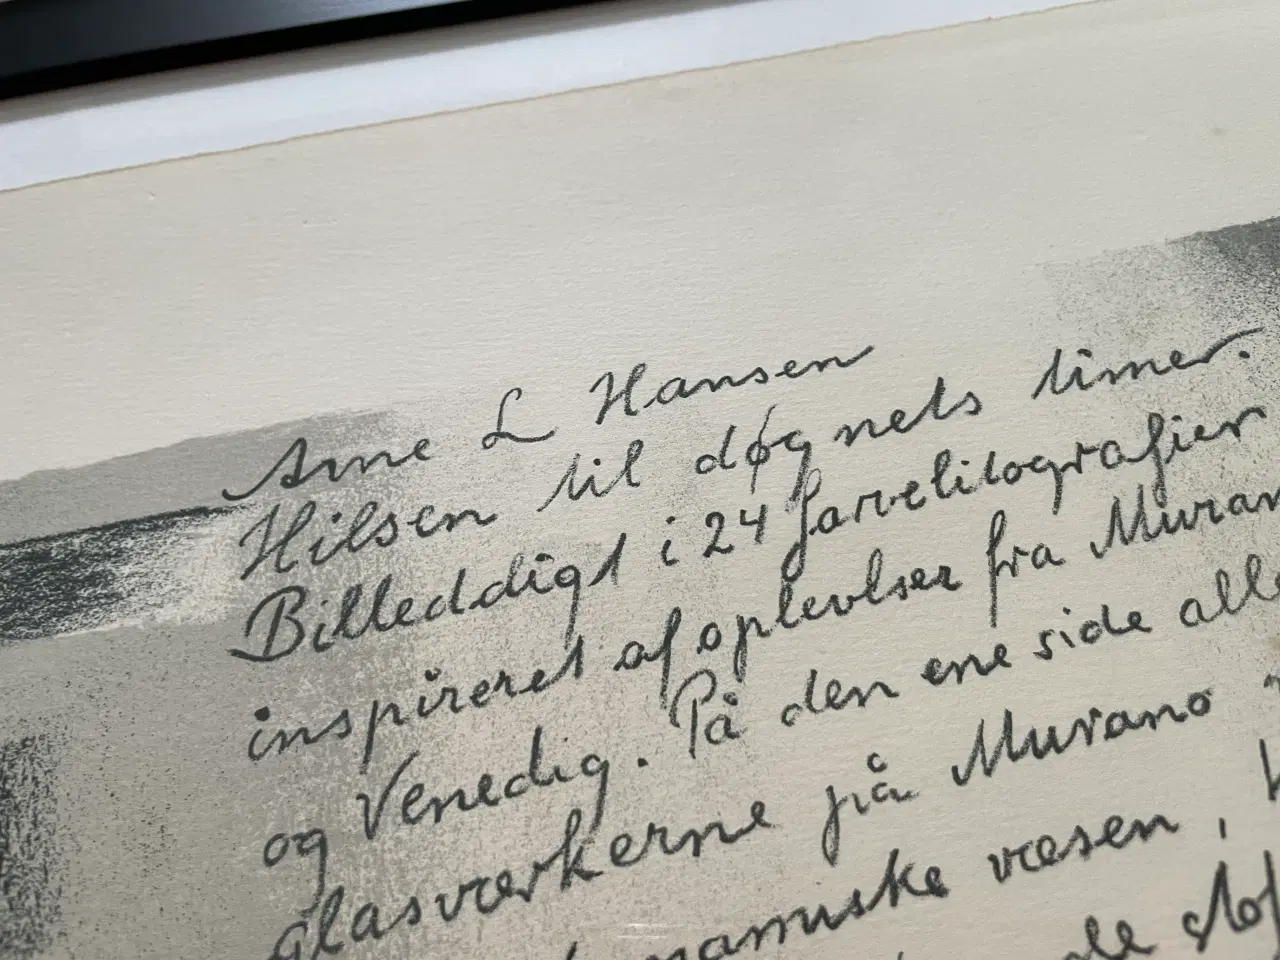 Arne L Hansen
Hilsen til døgnets timer.
Billeddigt i 24 farvelitografier
inspireret af oplevlser fra Muran
og Venedig. På den ene side alle
glasværkerne på Murano
væsen,